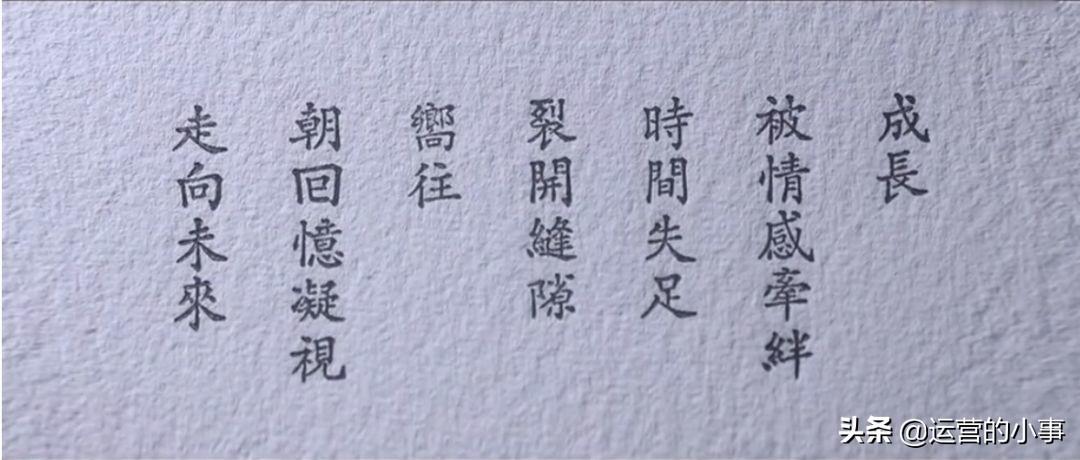 成長
被情感牽絆
時間失足
裂開縫隙
嚮往
朝回憶凝視
走向未來
头条 @运营的小事